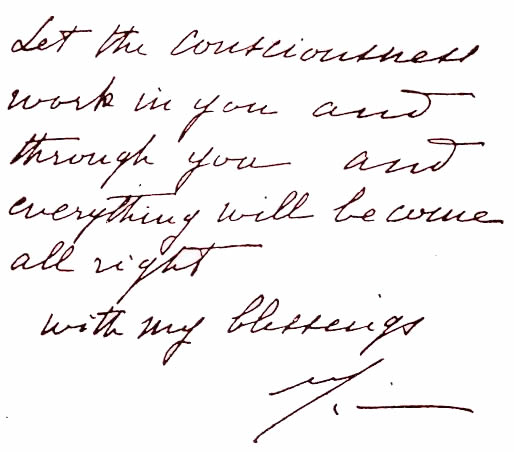 Let the consciousness
work in you and
through you and
everything will become
all right
with my blessings